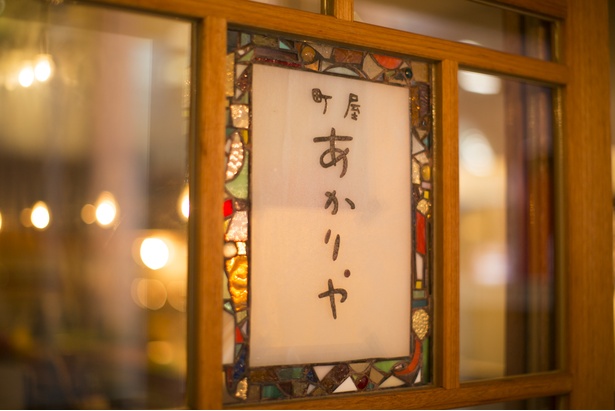 町屋
あかりや